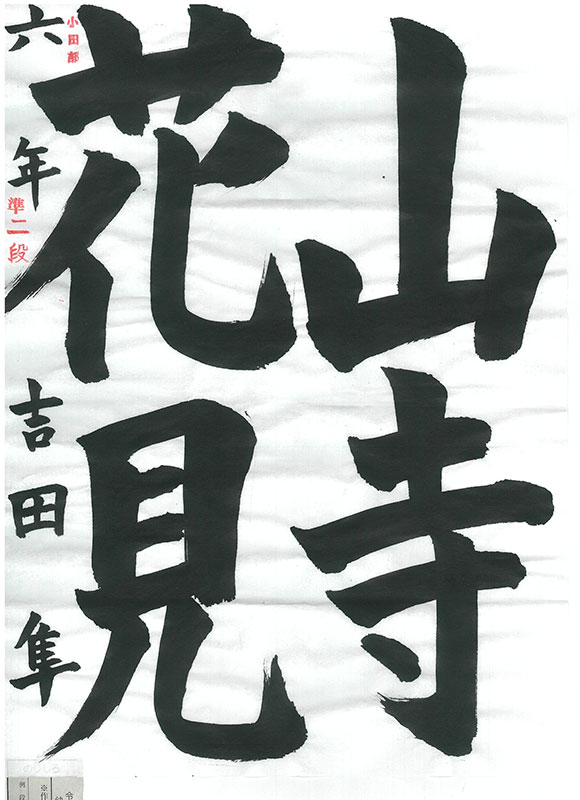 山寺
花見
六年 吉田隼
小田部
準二段